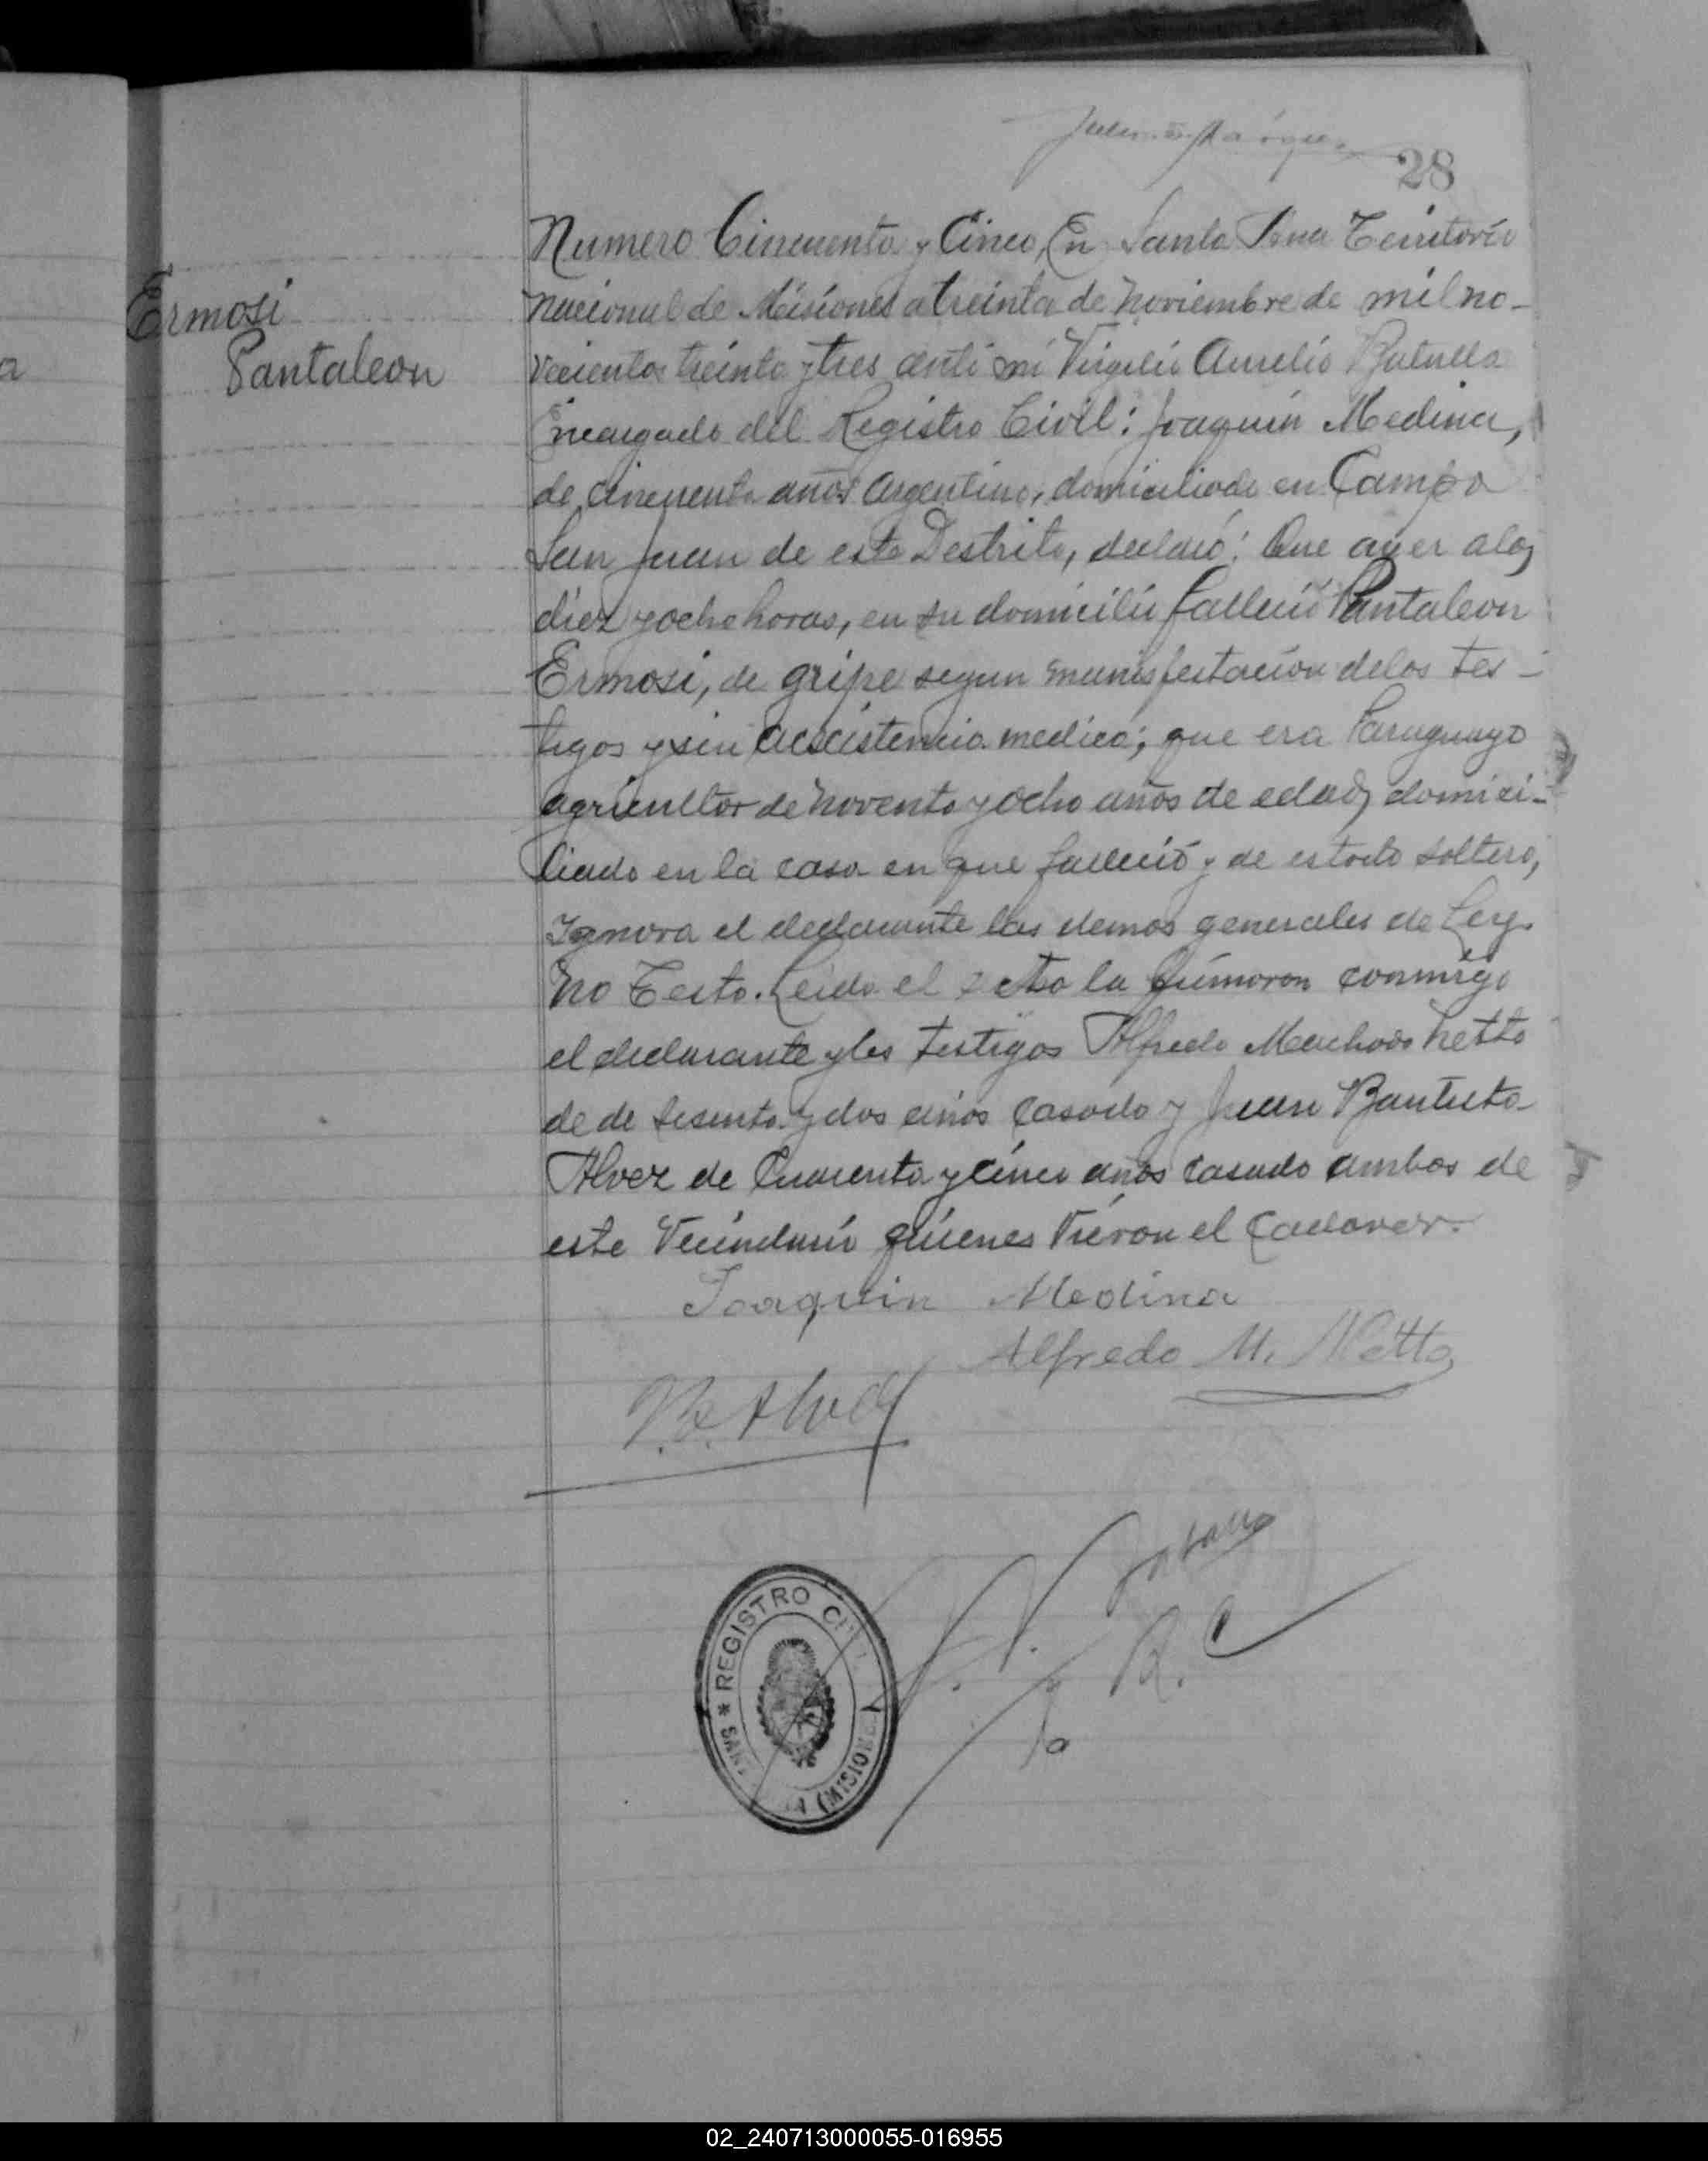 28
Numero Cincuenta y Cinco, En Santa Ana Territorio
Ermosi
Pantaleon
nacional de Misiones a treinta de noviembre de mil no-
vecientos treinta y tres anti mi Virgilio Aurelio
Encargado del Registro Civil: Joaquin Medina,
de cincuenta años Argentino, domiciliado en Campo
San Juan de este Destrito, declaró: Que ayer a las
diez y ocho horas, en su domicilio falleció Pantaleon
Ermosi, de gripe segun manisfestacion de los tes-
tigos y sin acsistencia medica; que era Paraguayo
agricultor de noventa y ocho años de edad, domici-
liado en la casa en que falleció y de estado soltero,
Ignora el declarante las demas generales de Ley.
No Testo. Leida el acta la firmaron conmigo
el declarante y los testigos Alfredo Machado Netto
de de sesenta y dos años casado y Juan Bautista
Alvez de Cuarenta y cinco años casado ambos de
este Vecindario quienes vieron el Cadaver.
Joaquin Medina
Alfredo M. Netto
REGISTRO CIVIL
SANTA ANA (MISIONES)
02_240713000055-016955